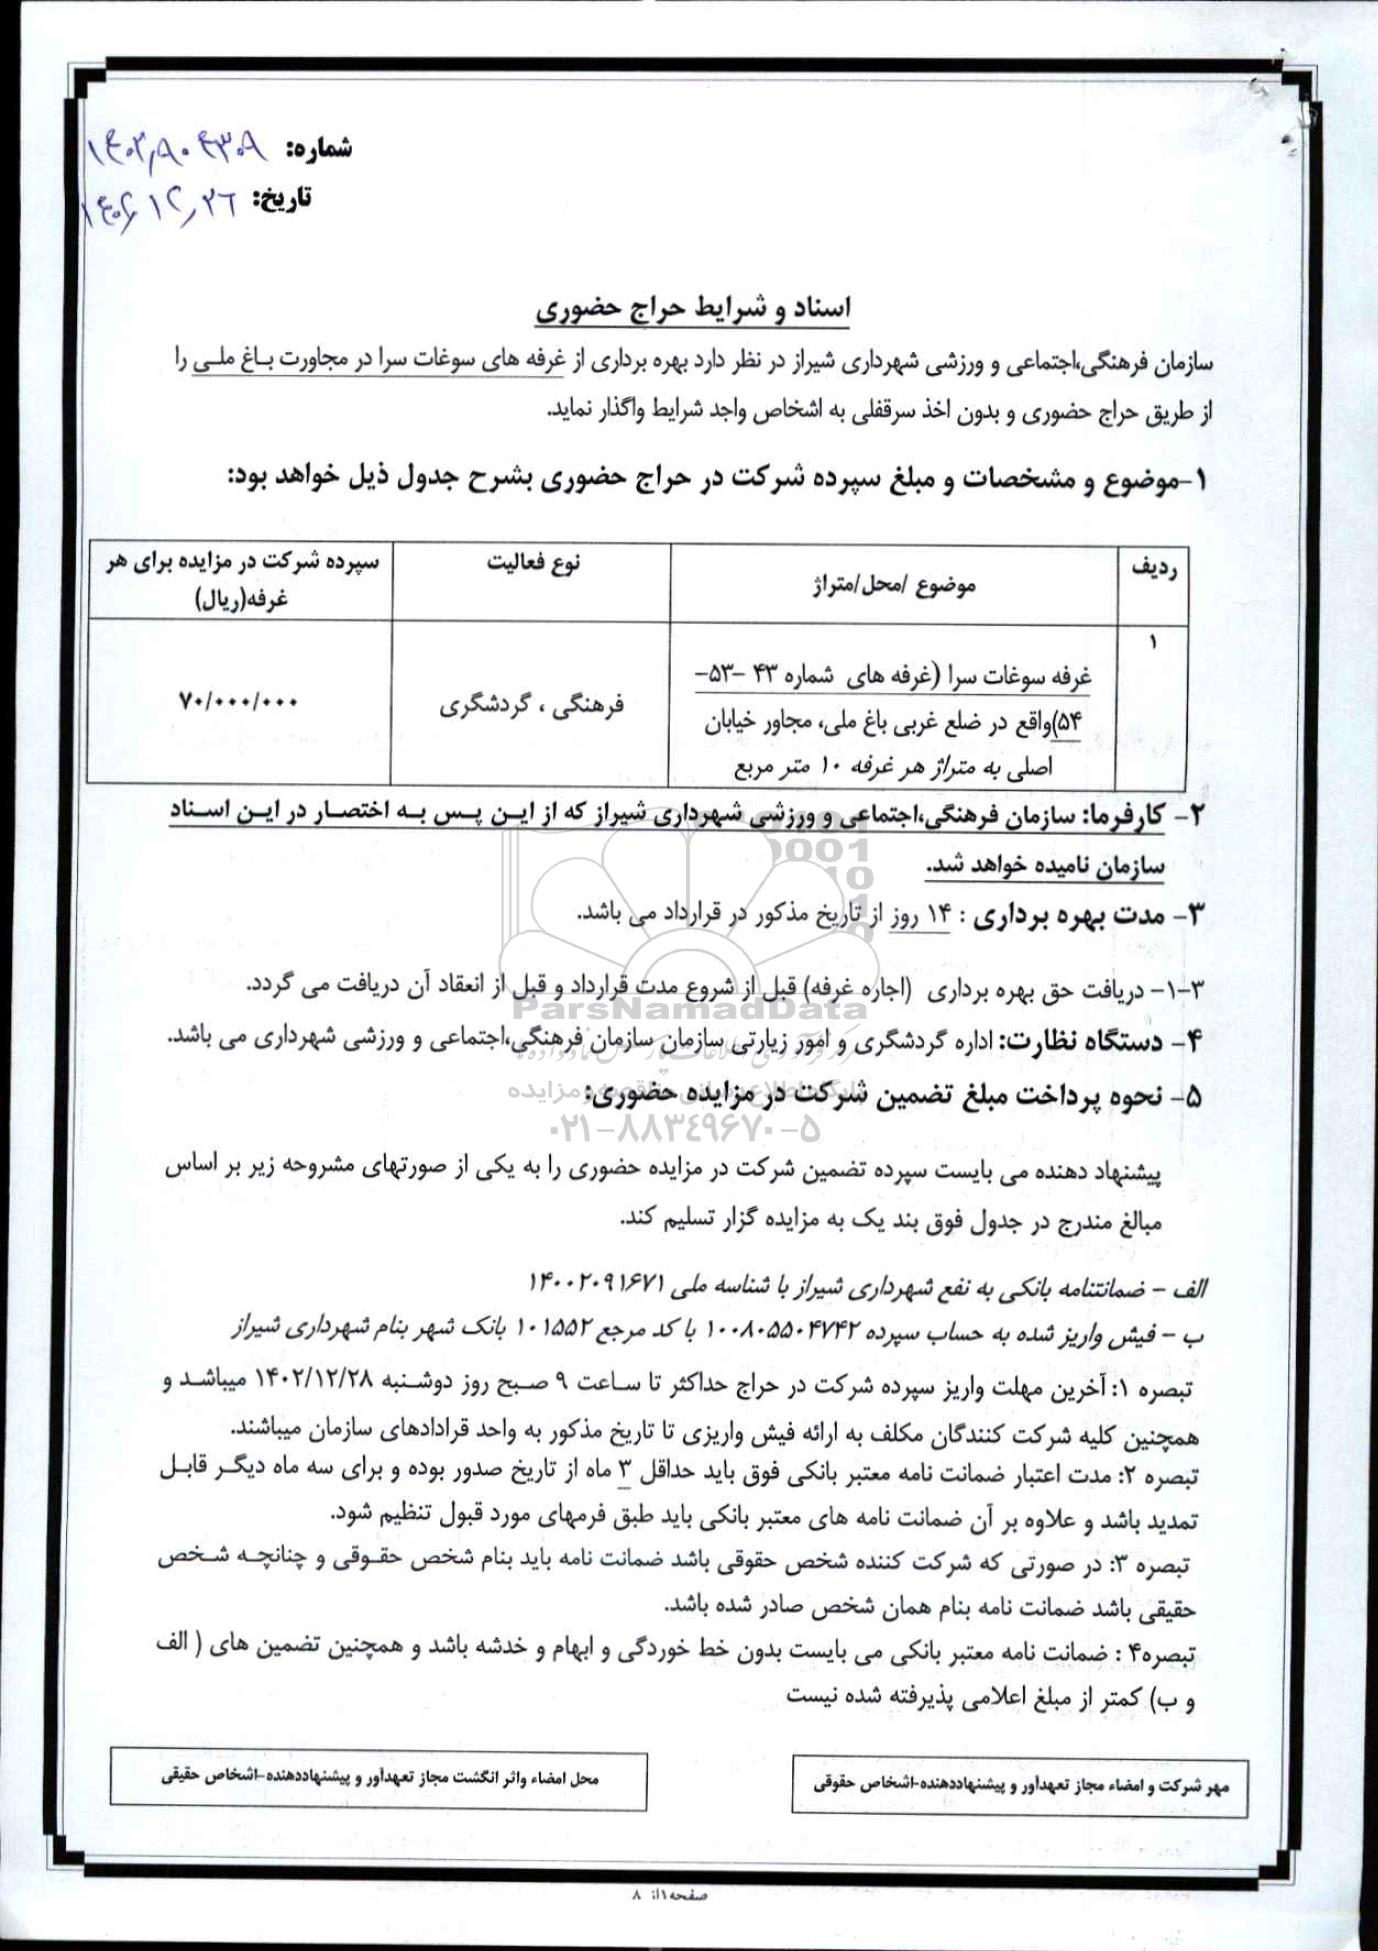 شماره: ۱۴۰۲٫۸۰۴۳۰۸
تاریخ: ۱۴۰۲٫۱۲٫۲۶
اسناد و شرایط حراج حضوری
سازمان فرهنگی،اجتماعی و ورزشی شهرداری شیراز در نظر دارد بهره برداری از غرفه های سوغات سرا در مجاورت باغ ملی را
از طریق حراج حضوری و بدون اخذ سرقفلی به اشخاص واجد شرایط واگذار نماید.
۱-موضوع و مشخصات و مبلغ سپرده شرکت در حراج حضوری بشرح جدول ذیل خواهد بود:
ردیف
موضوع /محل/متراژ
نوع فعالیت
سپرده شرکت در مزایده برای هر
غرفه(ریال)
۱
غرفه سوغات سرا (غرفه های شماره ۴۳ -۵۳-
۵۴)واقع در ضلع غربی باغ ملی، مجاور خیابان
اصلی به متراژ هر غرفه ۱۰ متر مربع
فرهنگی ، گردشگری
۷۰/۰۰۰/۰۰۰
۲- کارفرما: سازمان فرهنگی،اجتماعی و ورزشی شهرداری شیراز که از این پس به اختصار در این اسناد
سازمان نامیده خواهد شد.
۳- مدت بهره برداری : ۱۴ روز از تاریخ مذکور در قرارداد می باشد.
۳-۱- دریافت حق بهره برداری (اجاره غرفه) قبل از شروع مدت قرارداد و قبل از انعقاد آن دریافت می گردد.
ParsNamadData
۴- دستگاه نظارت: اداره گردشگری و امور زیارتی سازمان سازمان فرهنگی،اجتماعی و ورزشی شهرداری می باشد.
۵- نحوه پرداخت مبلغ تضمین شرکت در مزایده حضوری:
۰۲۱-۸۸۳۴۹۶۷۰-۵
پیشنهاد دهنده می بایست سپرده تضمین شرکت در مزایده حضوری را به یکی از صورتهای مشروحه زیر بر اساس
مبالغ مندرج در جدول فوق بند یک به مزایده گزار تسلیم کند.
الف - ضمانتنامه بانکی به نفع شهرداری شیراز با شناسه ملی ۱۴۰۰۲۰۹۱۶۷۱
ب - فیش واریز شده به حساب سپرده ۱۰۰۸۰۵۵۰۴۷۴۲ با کد مرجع ۱۰۱۵۵۲ بانک شهر بنام شهرداری شیراز
تبصره ۱: آخرین مهلت واریز سپرده شرکت در حراج حداکثر تا ساعت ۹ صبح روز دوشنبه ۱۴۰۲/۱۲/۲۸ میباشد و
همچنین کلیه شرکت کنندگان مکلف به ارائه فیش واریزی تا تاریخ مذکور به واحد قرادادهای سازمان میباشند.
تبصره ۲: مدت اعتبار ضمانت نامه معتبر بانکی فوق باید حداقل ۳ ماه از تاریخ صدور بوده و برای سه ماه دیگر قابل
تمدید باشد و علاوه بر آن ضمانت نامه های معتبر بانکی باید طبق فرمهای مورد قبول تنظیم شود.
تبصره ۳: در صورتی که شرکت کننده شخص حقوقی باشد ضمانت نامه باید بنام شخص حقوقی و چنانچه شخص
حقیقی باشد ضمانت نامه بنام همان شخص صادر شده باشد.
تبصره۴ : ضمانت نامه معتبر بانکی می بایست بدون خط خوردگی و ابهام و خدشه باشد و همچنین تضمین های ( الف
و ب) کمتر از مبلغ اعلامی پذیرفته شده نیست
مهر شرکت و امضاء مجاز تعهدآور و پیشنهاددهنده-اشخاص حقوقی
محل امضاء واثر انگشت مجاز تعهدآور و پیشنهاددهنده-اشخاص حقیقی
صفحه۱از ۸